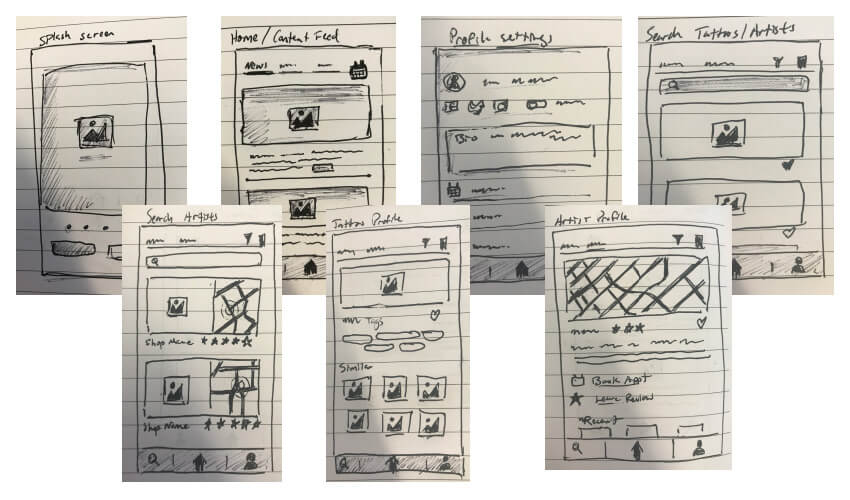 Splash screen
Home/Content Feed
NEWS
Profile settings
Bio
Search Tattoos/Artists
Search Artists
Shop Name
Shop Name
Tattoo Profile
Tags
Similar
Artist Profile
name
Book Appt
Leave Review
Recent